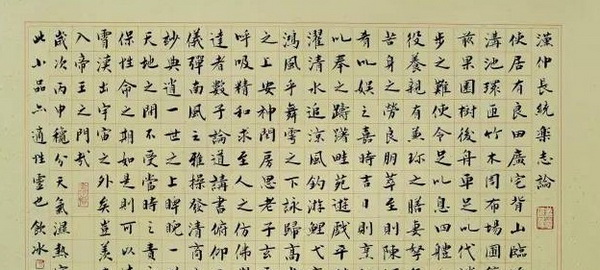 漢仲長統樂志論
使居有良田廣宅背山臨
溝池環匝竹木周布場圃
前果園樹後舟車足以代
步之難使令足以息四體
役養親有兼珍之膳妻孥
苦身之勞良朋萃至則陳
肴以娛之喜時吉日則烹
以奉之躊躇畦苑遊戲平
濯清水追涼風釣游鯉弋
鴻風乎舞雩之下詠歸高
之上安神閨房思老子玄
呼吸精和求至人之仿佛
達者數子論道講書俯仰
儀彈南風之雅操發清商
妙典逍一世之上睥睨
天地之間不受當時之責
保性命之期如是則可以
霄漢出宇宙之外矣豈羨
入帝王之門哉
歲次丙申穐分天氣濕熱
此小品亦適性靈也飲冰